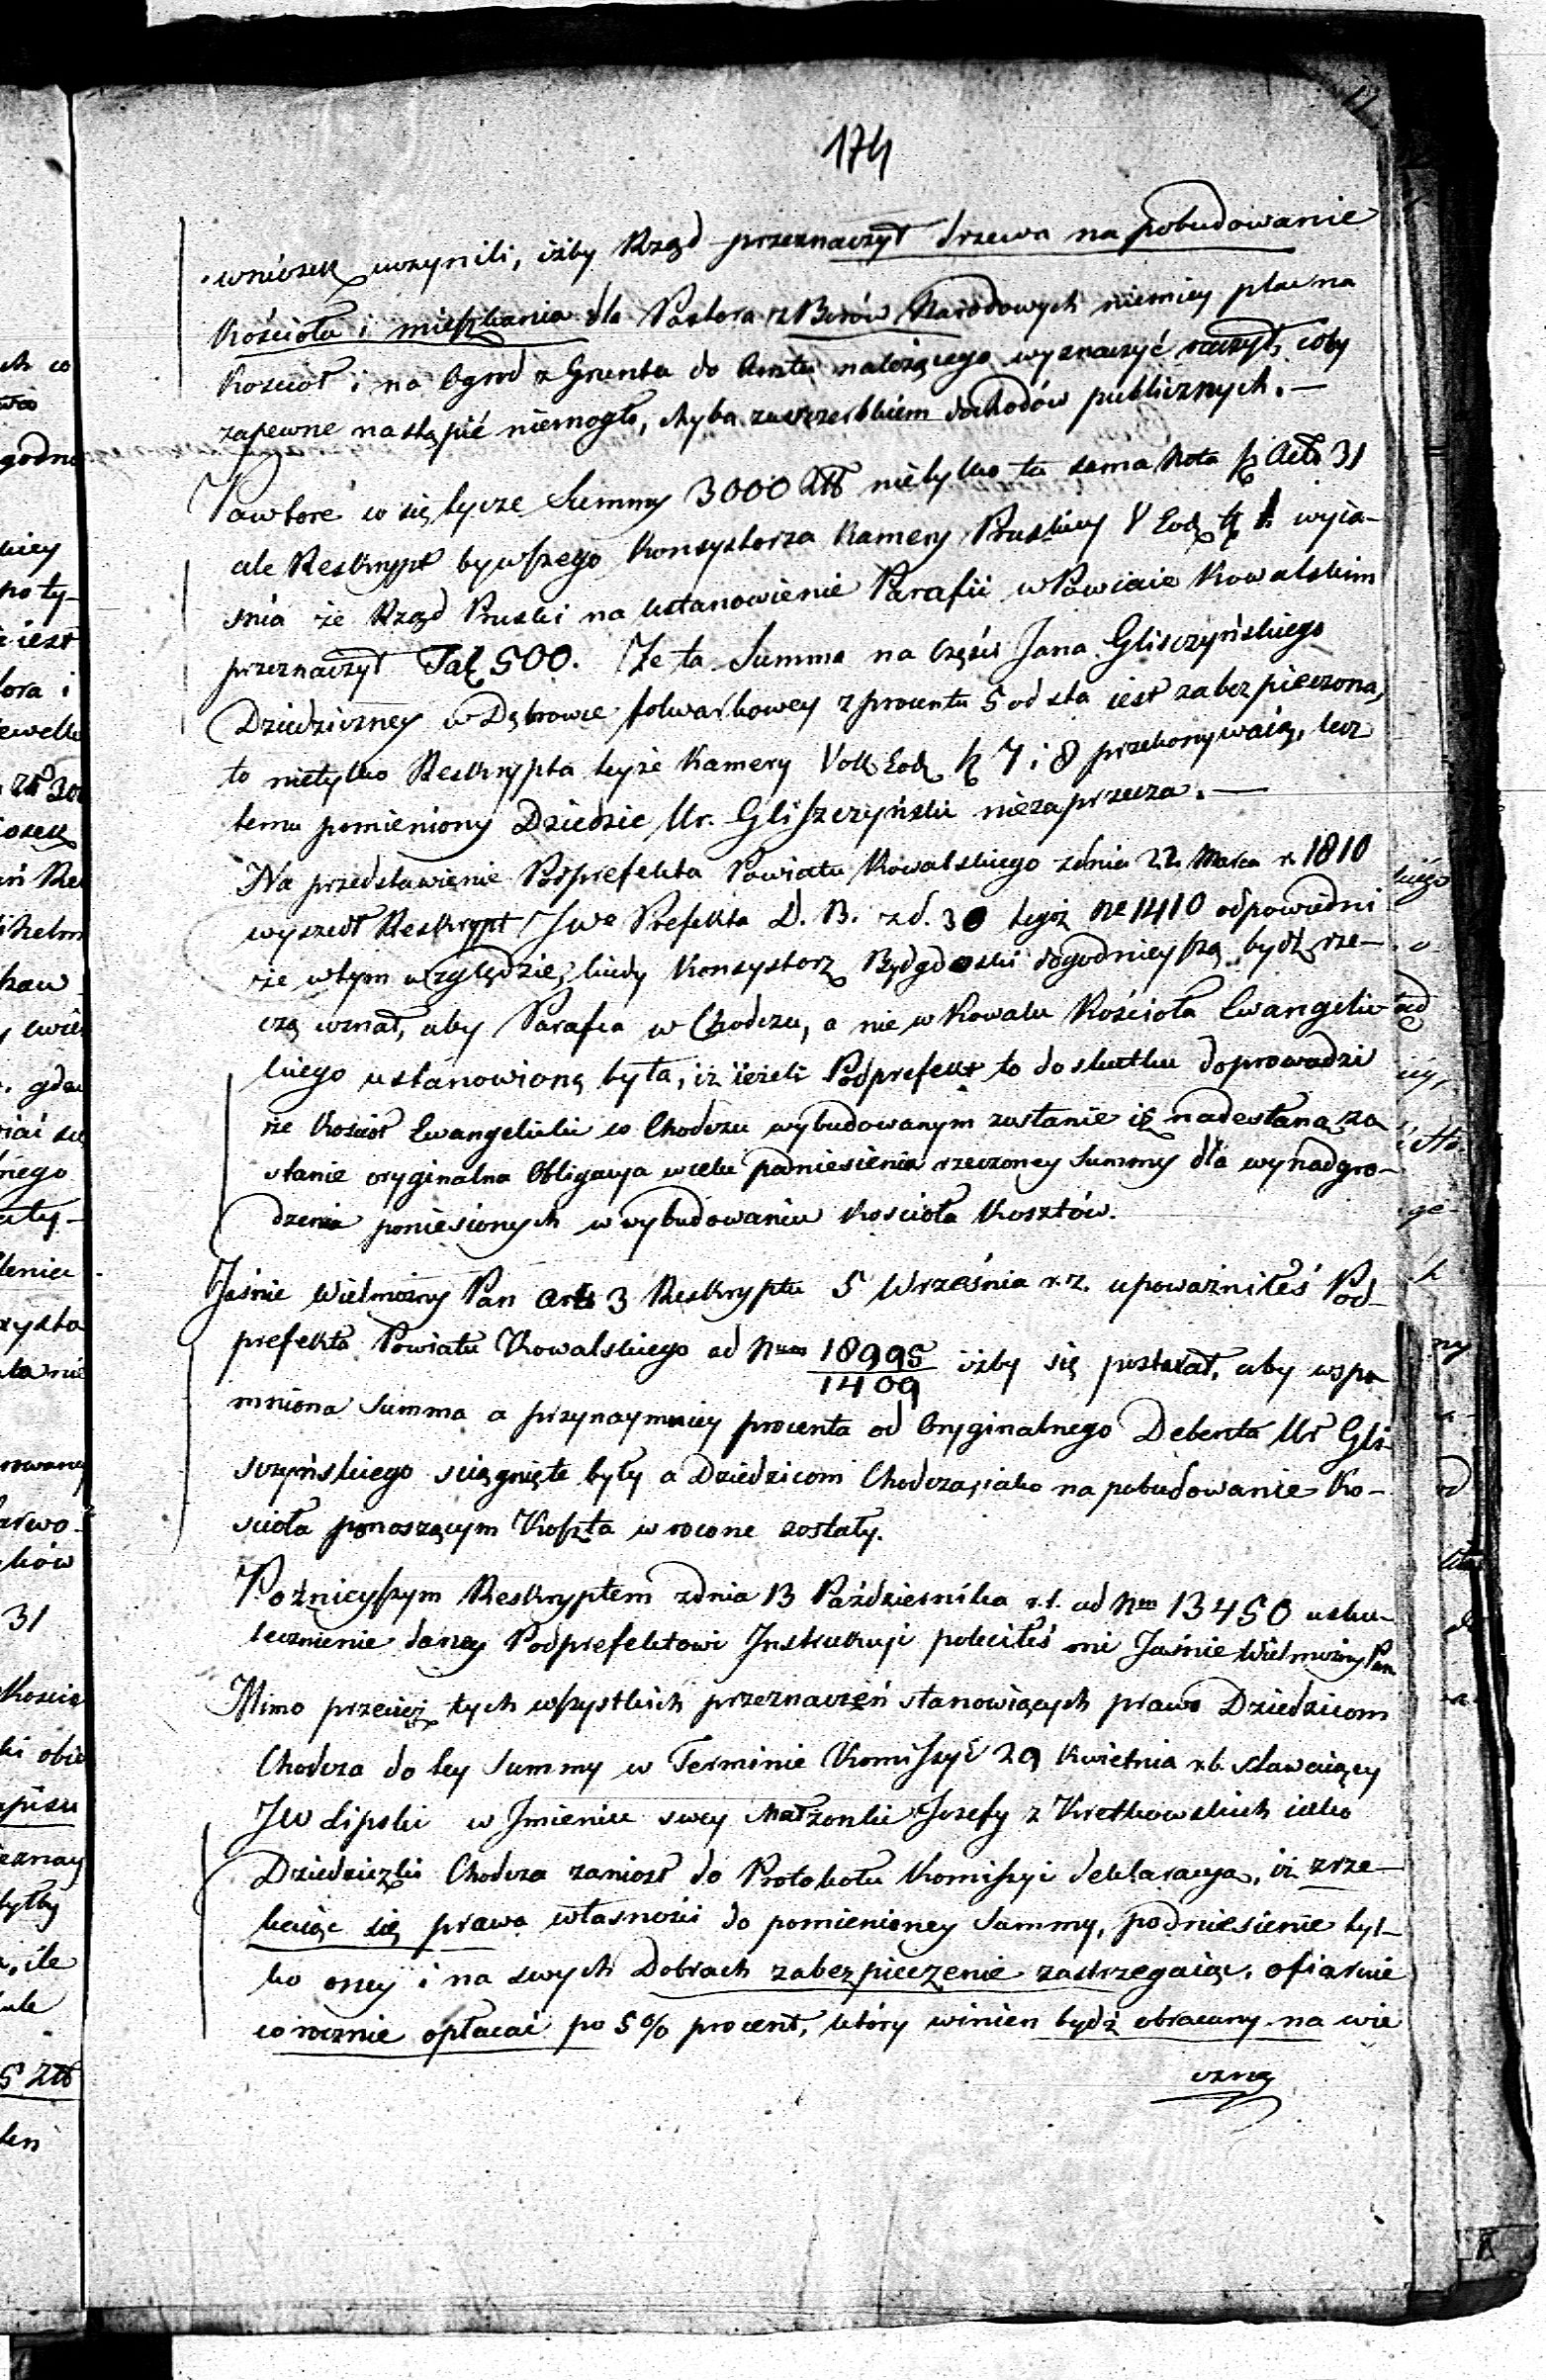 174
wniosek uczynili, iżby Rząd przeznaczył drzewa na pobudowanie
Kościoła i mieszkania dla Pastora z Borów Narodowych niemniey plac na
Kosciół i na Ogrod z Grunta do Amtu należącego wyznaczyć raczył, coby
zapewne nastąpić niemogło, chyba zuszczerbkiem dochodów publicznych. —
Powtore co się tycze Summy 3000 niétylko ta sama Nota 31
ale Reskrypt bywszego Konsystorza Kamery Pruskiey wyia-
śnia że Rząd Pruski na Ustanowienie Parafii w Powiecie Kowalskim
przeznaczył Tal 500. Że ta Summa na części Jana Gliszczyńskiego
Dziedziczney w Dąbrowce folwarkowey z procentu 5 od sta iest zabezpieczona,
to nietylko Reskrypta teyże Kamery 7 i 8 przekonywaią, lecz
temu pomieniony Dziedzic Ur. Gliszczyński niezaprzecza. —
Na przedstawienie Podprefekta Powiatu Kowalskiego zdnia 22 Marca r. 1810
wyszedł Reskrypt JWo Prefekta D. B. z d. 30 tegoż 1410 odpowiedni
że wtym względzie, kiedy Konsystorz Bydgoski dogodnieyszą bydź rze-
czą uznał, aby Parafia w Chodczu, a nie w Kowalu Kościoła Ewangelic-
kiego ustanowioną była, iż ieżeli Podprefekt to do skutku doprowadzi
że Kosciół Ewangelicki w Chodczu wybudowanym zostanie iż nadesłana zo
stanie oryginalna Obligacya w celu podniesienia rzeczoney Summy dla wynadgro-
dzenia poniesionych w wybudowaniu Kosciola Kosztów.
Jaśnie Wielmożny Pan 3 Reskryptu 5 Września r. z. upoważniłeś Pod-
prefekta Powiatu Kowalskiego ad Num 18995/1409 iżby się postarał, aby wspo
mniona Summa a przynaymniey procenta od Oryginalnego Debenta Ur Gli-
szczyńskiego sciągnięte były a Dziedzicom Chodcza, iako na pobudowanie Ko-
scioła ponoszącym Koszta wrocone zostały.
Poźnieyszym Reskryptem zdnia 13 Października r. t. ad Nm 13450 usku-
tecznienie daney Podprefektowi Instrukcyi poleciłeś mi Jaśnie Wielmożny Pan
Mimo przecież tych wszystkich przeznaczeń stanowiących prawo Dziedzicom
Chodcza do tey Summy w Terminie Komissyi 29 Kwietnia r. b. stawaiący
JW Lipski w Jmieniu swey Małżonki Jozefy z Kretkowskich iako
Dziedziczki Chodcza zaniosł do Protokołu Komissyi deklaracya, iż zrze-
kaiąc się prawa własności do pomienioney Summy, podniesienie tyl-
ko oney i na swych Dobrach zabezpieczenie zastrzegaiąc, ofiaruie
corocznie opłacać po 5% procent, który winien bydź obracany na wie
czną